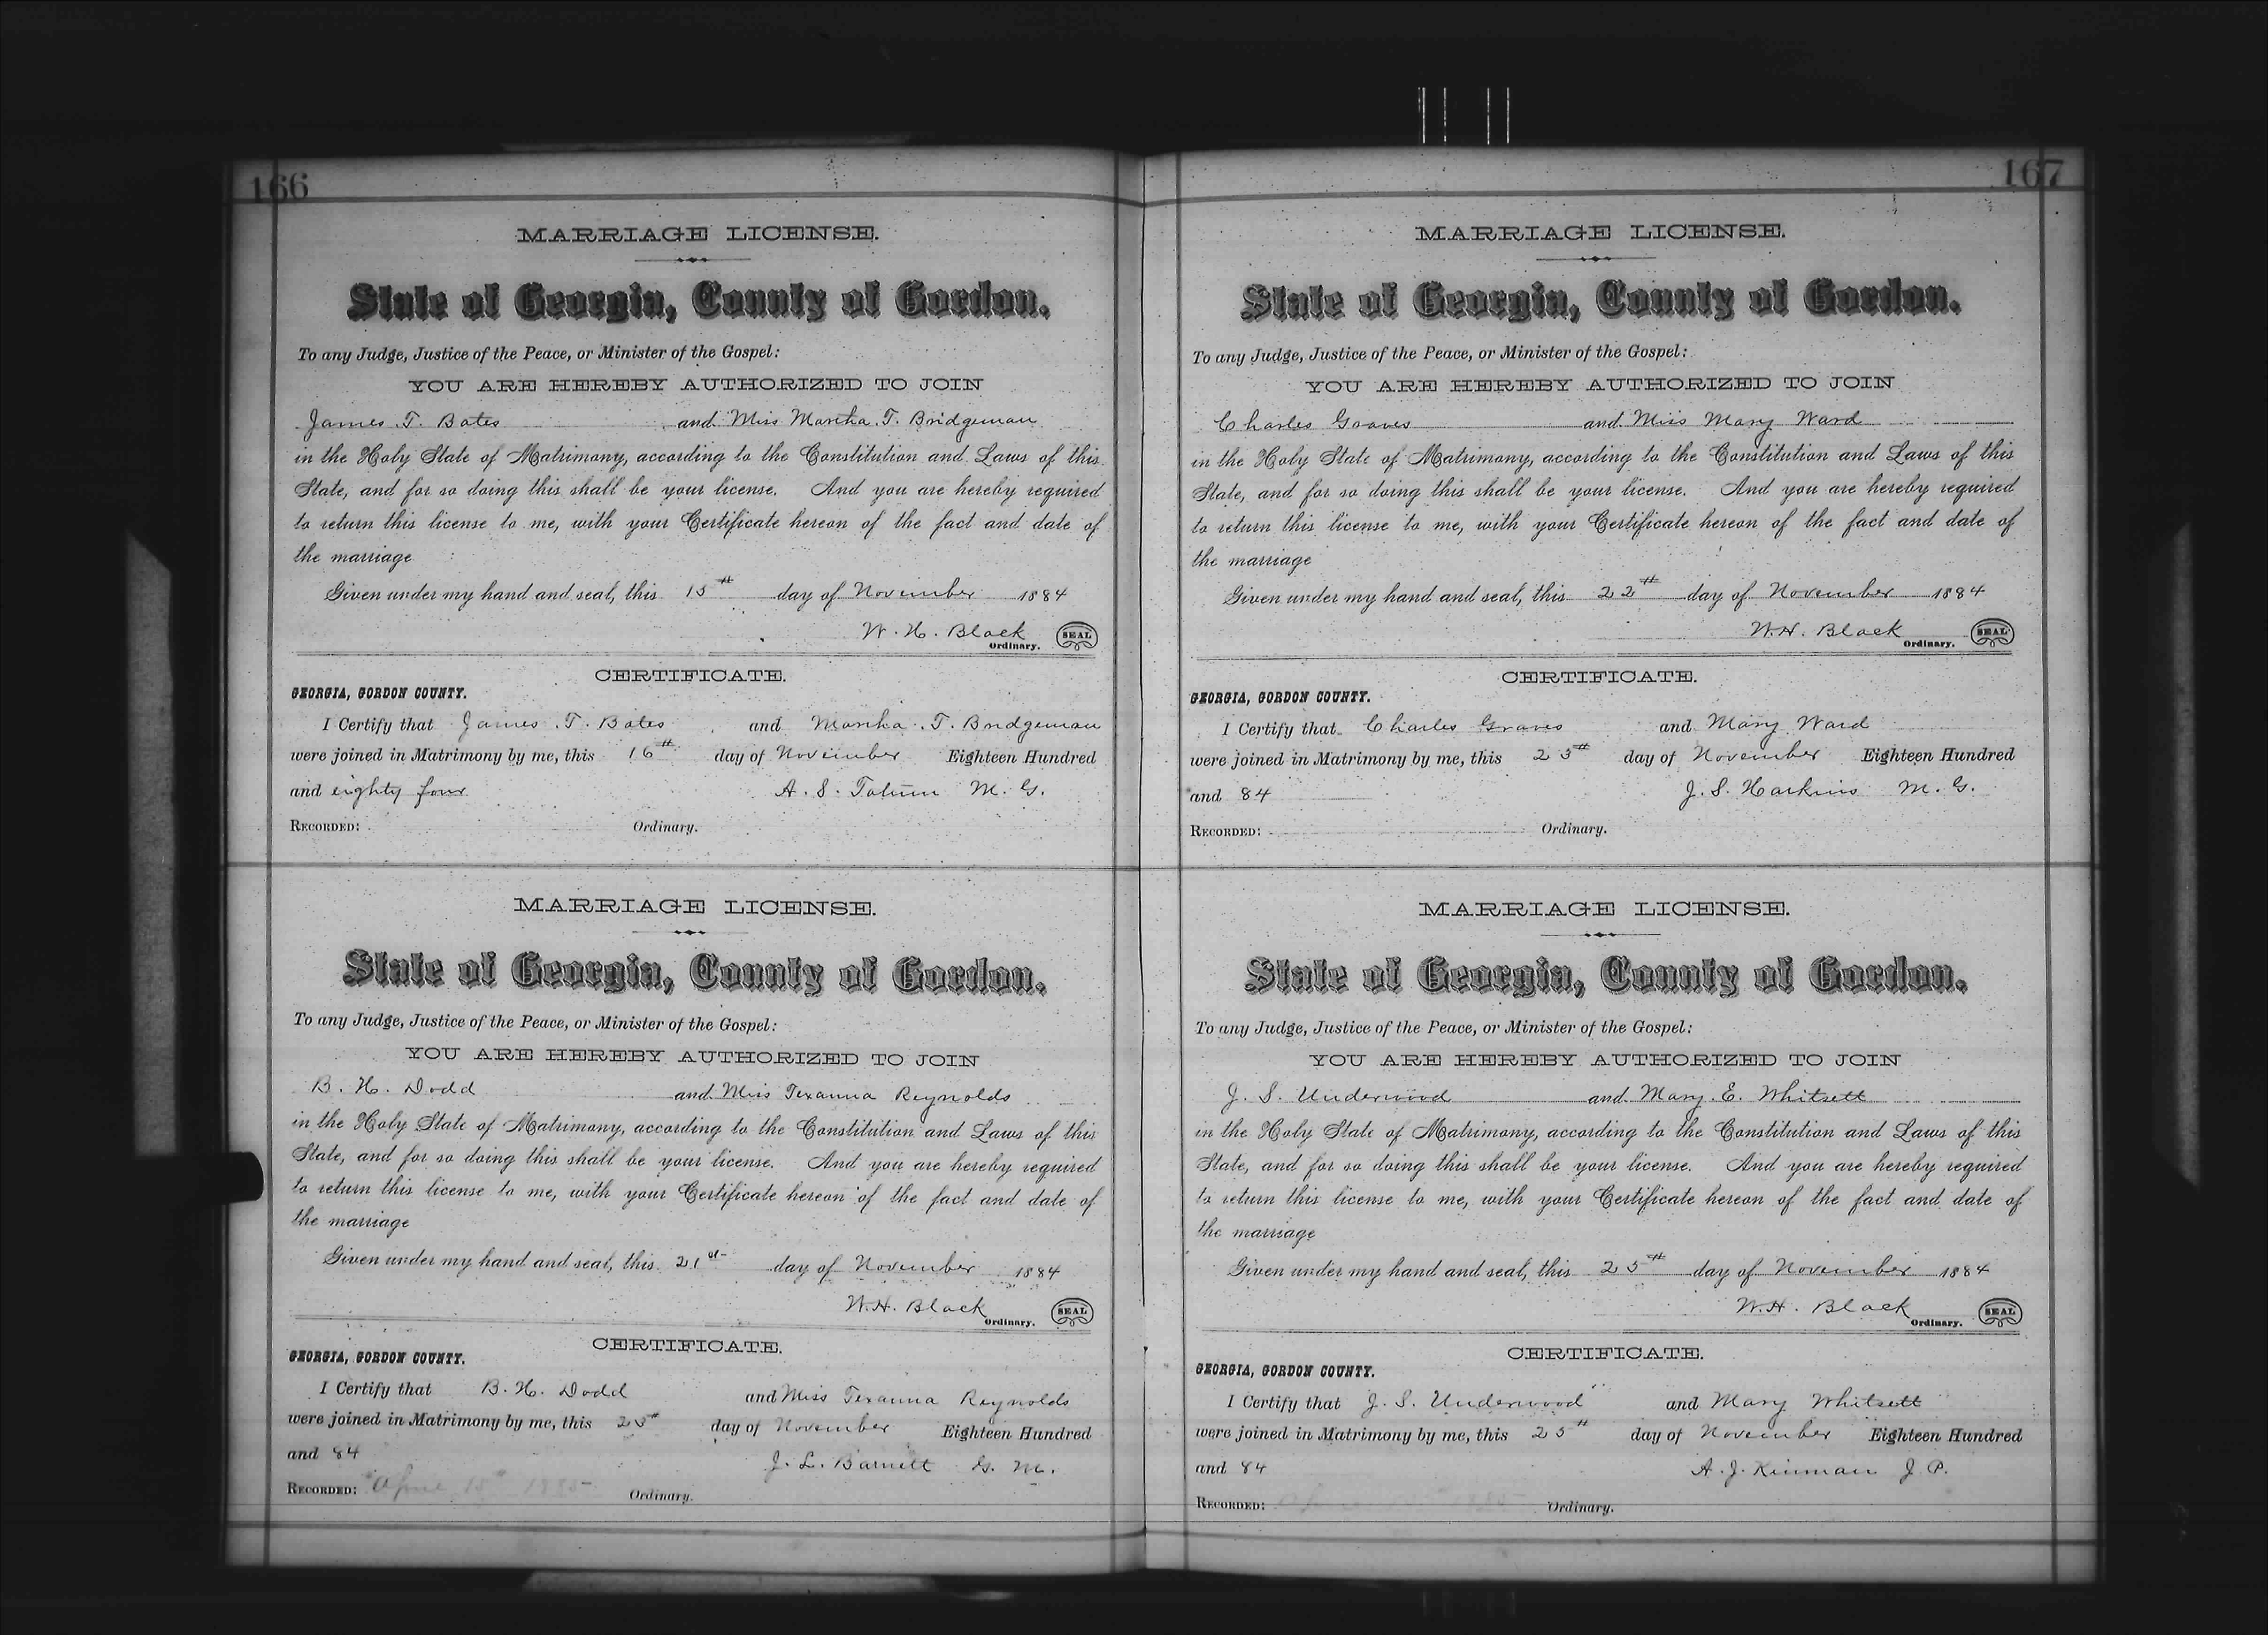 166
MARRIAGE LICENSE.
State of Georgia, County of Gordon.
To any Judge, Justice of the Peace, or Minister of the Gospel:
YOU ARE HEREBY AUTHORIZED TO JOIN
James T. Bates and Miss Martha T. Bridgeman
in the Holy State of Matrimony, according to the Constitution and Laws of this
State, and for so doing this shall be your license. And you are hereby required
to return this license to me, with your Certificate hereon of the fact and date of
the marriage
Given under my hand and seal, this 15th day of November 1884
W. H. Black
Ordinary. SEAL
CERTIFICATE.
GEORGIA, GORDON COUNTY.
I Certify that James T. Bates and Martha T. Bridgeman
were joined in Matrimony by me, this 16th day of November Eighteen Hundred
and eighty four A. S. Tatum M. G.
RECORDED: Ordinary.
MARRIAGE LICENSE.
State of Georgia, County of Gordon.
To any Judge, Justice of the Peace, or Minister of the Gospel:
YOU ARE HEREBY AUTHORIZED TO JOIN
B. H. Dodd and Miss Texanna Reynolds
in the Holy State of Matrimony, according to the Constitution and Laws of this
State, and for so doing this shall be your license. And you are hereby required
to return this license to me, with your Certificate hereon of the fact and date of
the marriage
Given under my hand and seal, this 21st day of November 1884
W. H. Black
Ordinary. SEAL
CERTIFICATE.
GEORGIA, GORDON COUNTY.
I Certify that B. H. Dodd and Miss Texanna Reynolds
were joined in Matrimony by me, this 23rd day of November Eighteen Hundred
and 84 J. L. Barnett G. M.
RECORDED: 15th 1885 Ordinary.
167
MARRIAGE LICENSE.
State of Georgia, County of Gordon.
To any Judge, Justice of the Peace, or Minister of the Gospel:
YOU ARE HEREBY AUTHORIZED TO JOIN
Charles Graves and Miss Mary Ward
in the Holy State of Matrimony, according to the Constitution and Laws of this
State, and for so doing this shall be your license. And you are hereby required
to return this license to me, with your Certificate hereon of the fact and date of
the marriage
Given under my hand and seal, this 22th day of November 1884
W. H. Black
Ordinary. SEAL
CERTIFICATE.
GEORGIA, GORDON COUNTY.
I Certify that Charles Graves and Mary Ward
were joined in Matrimony by me, this 25th day of November Eighteen Hundred
and 84 J. S. Harkins M. G.
RECORDED: Ordinary.
MARRIAGE LICENSE.
State of Georgia, County of Gordon.
To any Judge, Justice of the Peace, or Minister of the Gospel:
YOU ARE HEREBY AUTHORIZED TO JOIN
J. S. Underwood and Mary E. Whitsett
in the Holy State of Matrimony, according to the Constitution and Laws of this
State, and for so doing this shall be your license. And you are hereby required
to return this license to me, with your Certificate hereon of the fact and date of
the marriage
Given under my hand and seal, this 25th day of November 1884
W. H. Black
Ordinary. SEAL
CERTIFICATE.
GEORGIA, GORDON COUNTY.
I Certify that J. S. Underwood and Mary Whitsett
were joined in Matrimony by me, this 25th day of November Eighteen Hundred
and 84 A. J. Kinman J. P.
RECORDED: Ordinary.